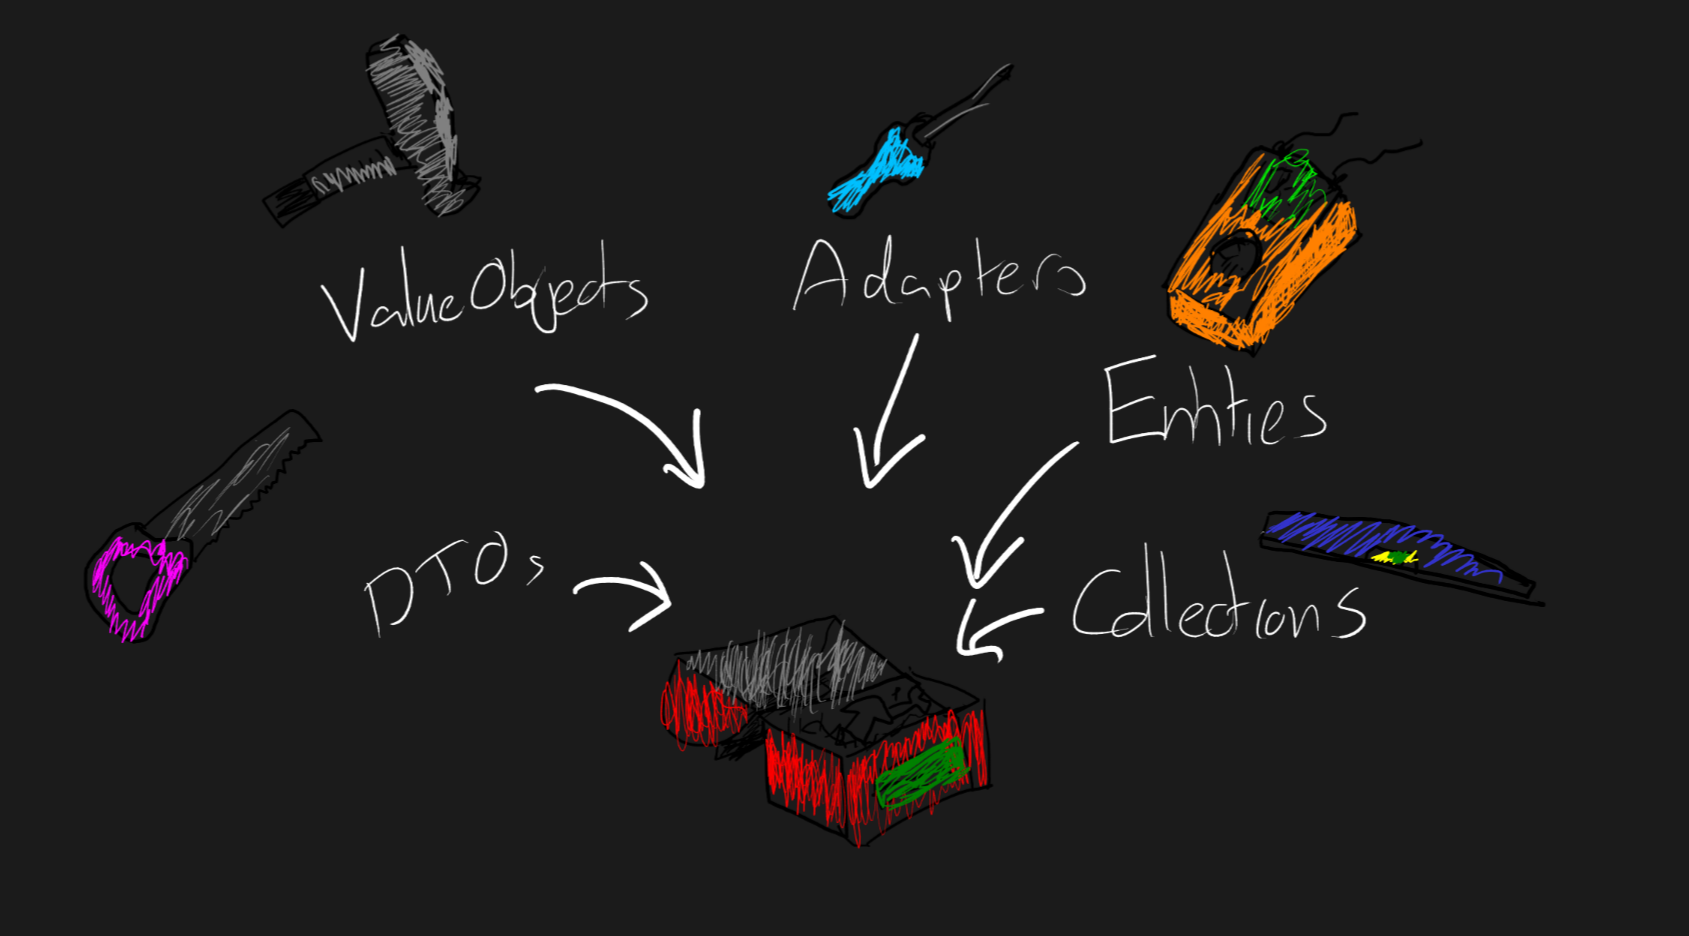 ValueObjects
Adapters
Entities
DTOs
Collections